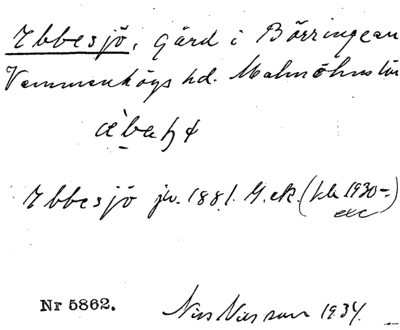 Ybbesjö, gård i Börringe sn
Vemmenhögs hd. Malmöhus län
Ybbesjö jb. 1881. G.ek. (1930-
Nr 5862.
Nils Nilsson 1934.